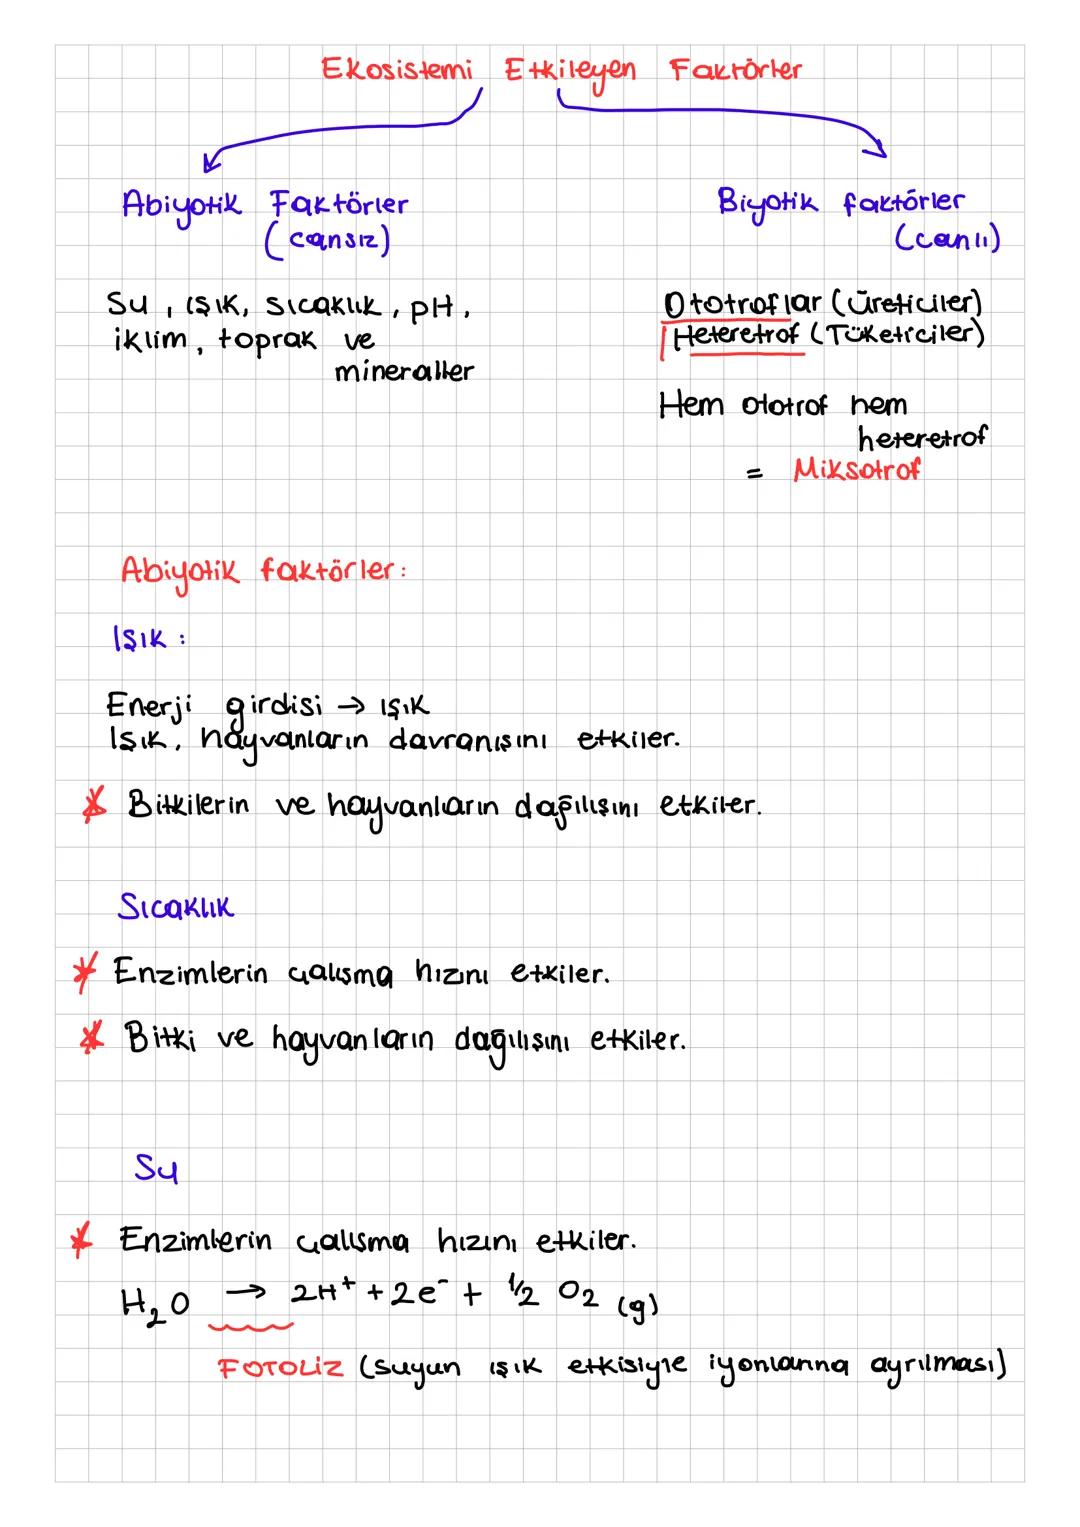 Ekosistemi Etkileyen Faktörler
Abiyotik Faktörler
(cansız)
Biyotik faktörler
(canlı)
Su, ışık, sıcaklık, pH,
iklim, toprak ve
mineraller
Ototroflar (üreticiler)
Heteretrof (Tüketiciler)
Hem ototrof hem
heteretrof
= Miksotrof
Abiyotik faktörler:
Işık :
Enerji girdisi → ışık
Işık, hayvanların davranışını etkiler.
* Bitkilerin ve hayvanların dağılışını etkiler.
Sıcaklık
* Enzimlerin çalışma hızını etkiler.
* Bitki ve hayvanların dağılışını etkiler.
Su
* Enzimlerin çalışma hızını etkiler.
H₂O → 2H⁺ + 2e⁻ + ½ O₂ (g)
FOTOLİZ (suyun ışık etkisiyle iyonlarına ayrılması)